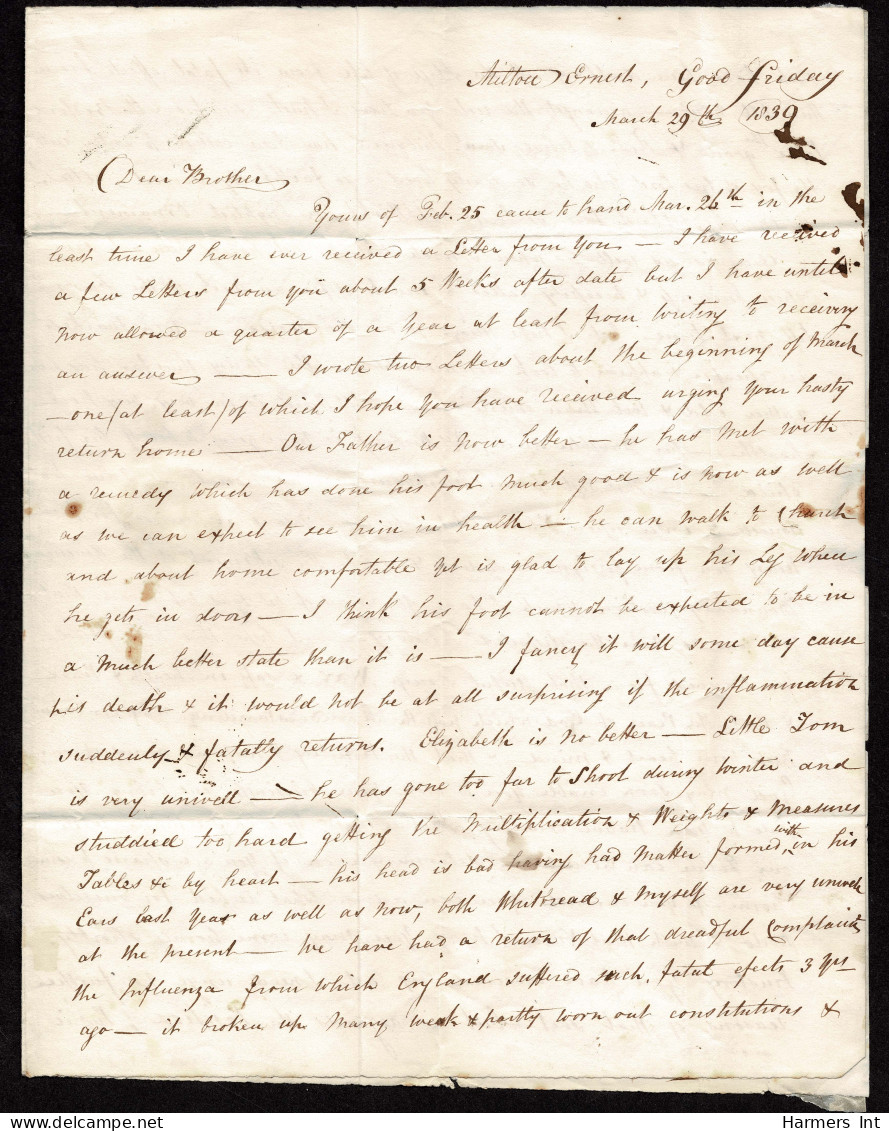 Milton Ernest, Good Friday
March 29th 1839
Dear Brother
Yours of Feb. 25 came to hand Mar. 26th in the
least time I have ever received a Letter from you — I have received
a few Letters from you about 5 Weeks after date but I have until
now allowed a quarter of a Year at least from writing to receiving
an answer — I wrote two Letters about the beginning of March
— one (at least) of which I hope you have received urging your hasty
return home — Our Father is now better — he has met with
a remedy which has done his foot much good & is now as well
as we can expect to see him in health — he can walk to Church
and about home comfortable yet is glad to lay up his Leg when
he gets in doors — I think his foot cannot be expected to be in
a much better state than it is — I fancy it will some day cause
his death & it would not be at all surprising if the inflammation
suddenly & fatally returns. Elizabeth is no better — Little Tom
is very unwell — he has gone too far to Shool during winter and
studdied too hard getting the Multiplication & Weights & Measures
Tables &c by heart — his head is bad having had matter formed with in his
Ears last year as well as now, both Whitbread & myself are very unwell
at the present — We have had a return of that dreadful Complaint
the Influenza from which England suffered such fatal efects 3 yrs
ago — it broken up many weak & partly worn out constitutions &
Harmers Int